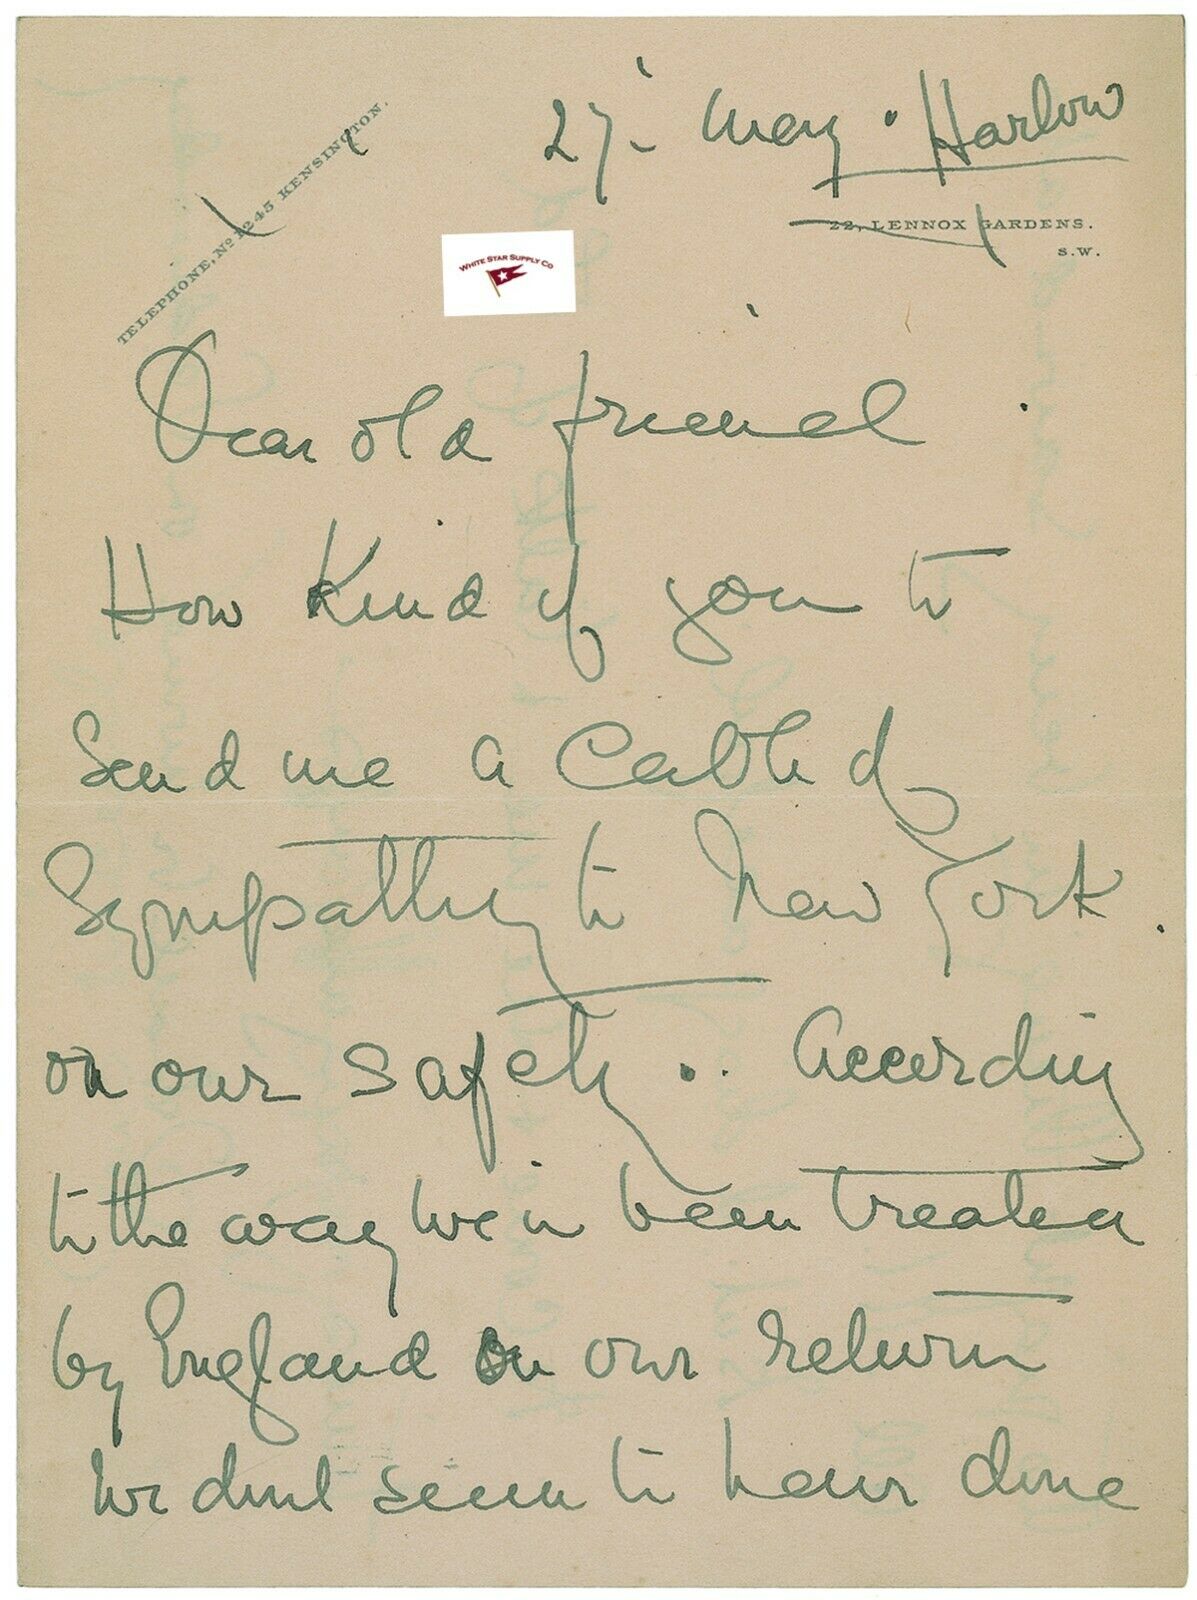 27 - May . Harlow
TELEPHONE, Nº 1245 KENSINGTON.
22, LENNOX GARDENS.
S.W.
WHITE STAR SUPPLY CO
Dear old friend .
How kind of you to
Send me a Cabled
Sympathy to New York .
on our safety . . According
to the way we've been treated
by England on our return
we dont seem to have done